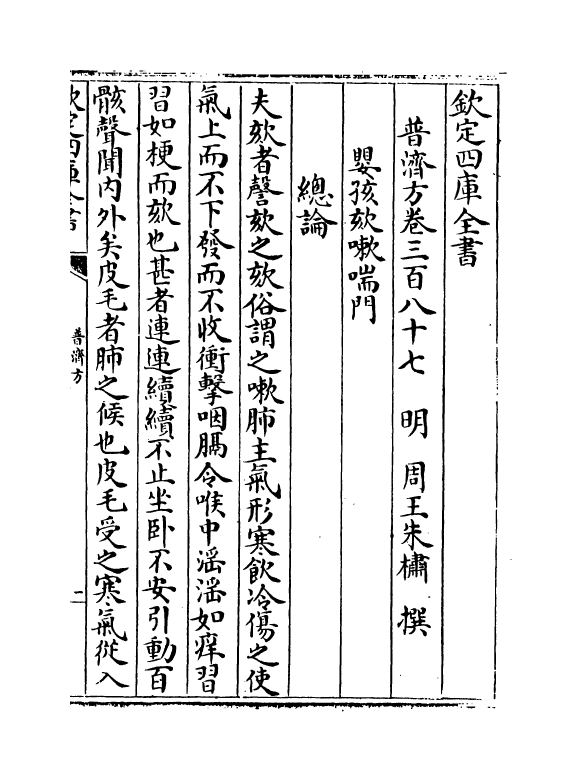 欽定四庫全書
普濟方卷三百八十七 明 周王朱橚 撰
嬰孩欬嗽喘門
總論
夫欬者謦欬之欬俗謂之嗽肺主氣形寒飲冷傷之使
氣上而不下發而不收衝擊咽膈令喉中滛滛如痒習
習如梗而欬也甚者連連續續不止坐卧不安引動百
骸聲聞内外矣皮毛者肺之候也皮毛受之寒氣從入
欽定四庫全書
普濟方